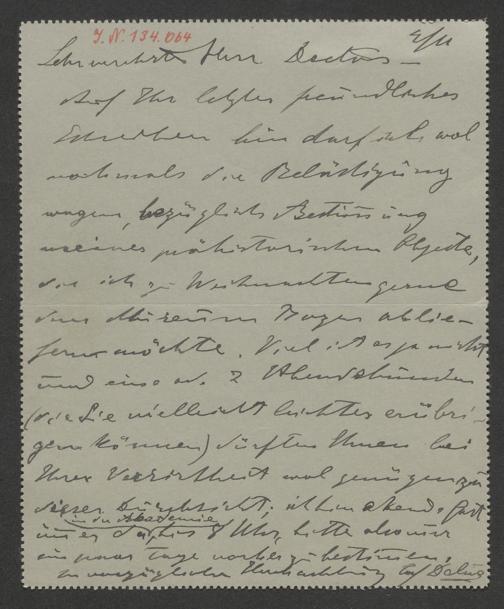 I. N. 134.064
4/11
Sehr verehrter Herr Doctor –
Auf Ihr letztes freundliches
Schreiben hin darf ich wol
nochmals die Belästigung
wagen, bezüglich Bestimmung
meines prähistorischen Objecte,
die ich zu Weihnachten gerne
dem Museum Bozen ablie-
fern möchte. Viel ist es ja nicht
und eine od. 2 Abendstunden
(die Sie vielleicht leichter erübri-
gen können) dürften Ihnen bei
Ihrer Versirtheit wol genügen zu
dieser Durchsicht; ich bin abends fast
in der Akademie
immer bis 8 Uhr, bitte also nur
ein paar Tage vorher zu bestimmen,
in vorzüglicher Hochachtung